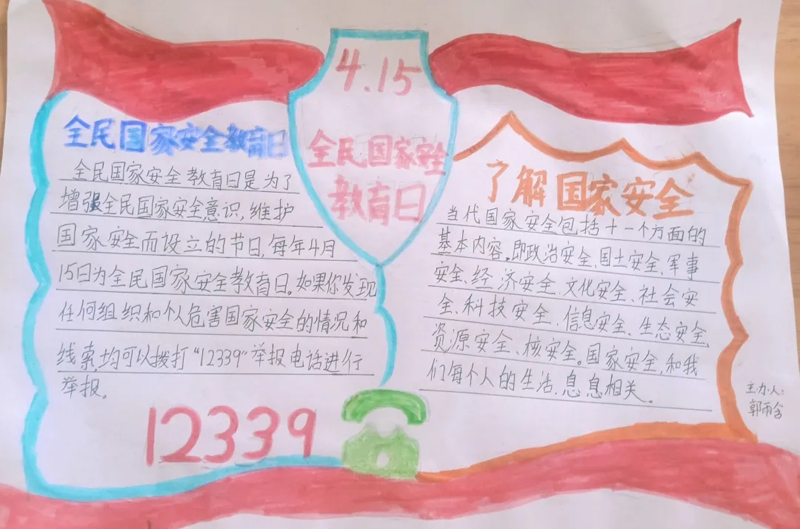 4.15
全民国家安全
教育日
全民国家安全教育日
全民国家安全教育日是为了
增强全民国家安全意识,维护
国家安全而设立的节日,每年4月
15日为全民国家安全教育日。如果你发现
任何组织和个人危害国家安全的情况和
线索均可以拨打“12339”举报电话进行
举报。
12339
了解国家安全
当代国家安全包括十一个方面的
基本内容,即政治安全、国土安全、军事
安全、经济安全、文化安全、社会安
全、科技安全、信息安全、生态安全、
资源安全、核安全。国家安全,和我
们每个人的生活、息息相关。
主办人:
郭雨含